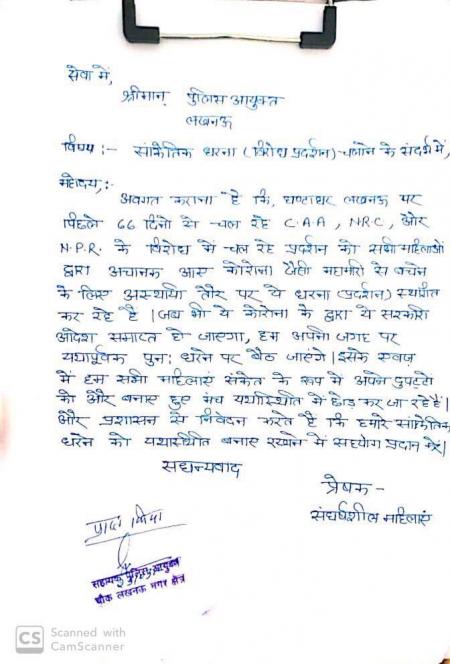 सेवा में,
श्रीमान् पुलिस आयुक्त
लखनऊ
विषय :- सांकेतिक धरना (विरोध प्रदर्शन) चलाने के संदर्भ में,
महोदय,:
अवगत कराना है कि, घण्टाघर लखनऊ पर
पिछले 66 दिनो से चल रहे C.A.A, N.R.C, और
N.P.R. के विरोध में चल रहे प्रदर्शन को सभी महिलाओं
द्वारा अचानक आए कोरोना जैसी महामारी से बचने
के लिए अस्थायी तौर पर ये धरना (प्रदर्शन) स्थगित
कर रहे है। जब भी ये कोरोना के द्वारा ये सरकारी
आदेश समाप्त हो जाएगा, हम अपनी जगह पर
यथापूर्वक पुनः धरने पर बैठ जाएगे। इसके स्वज
में हम सभी महिलाएं संकेत के रूप में अपने दुपट्टो
को और बनाए हुए मंच यथास्थिति में छोड़ कर जा रहे हैं।
और प्रशासन से निवेदन करते है कि हमारे सांकेतिक
धरने को यथास्थिति बनाए रखने में सहयोग प्रदान करे।
सधन्यवाद
प्रेषक -
संघर्षशील महिलाएं
प्राप्त किया
सहायक पुलिस आयुक्त
चौक लखनऊ नगर क्षेत्र
CS Scanned with
CamScanner